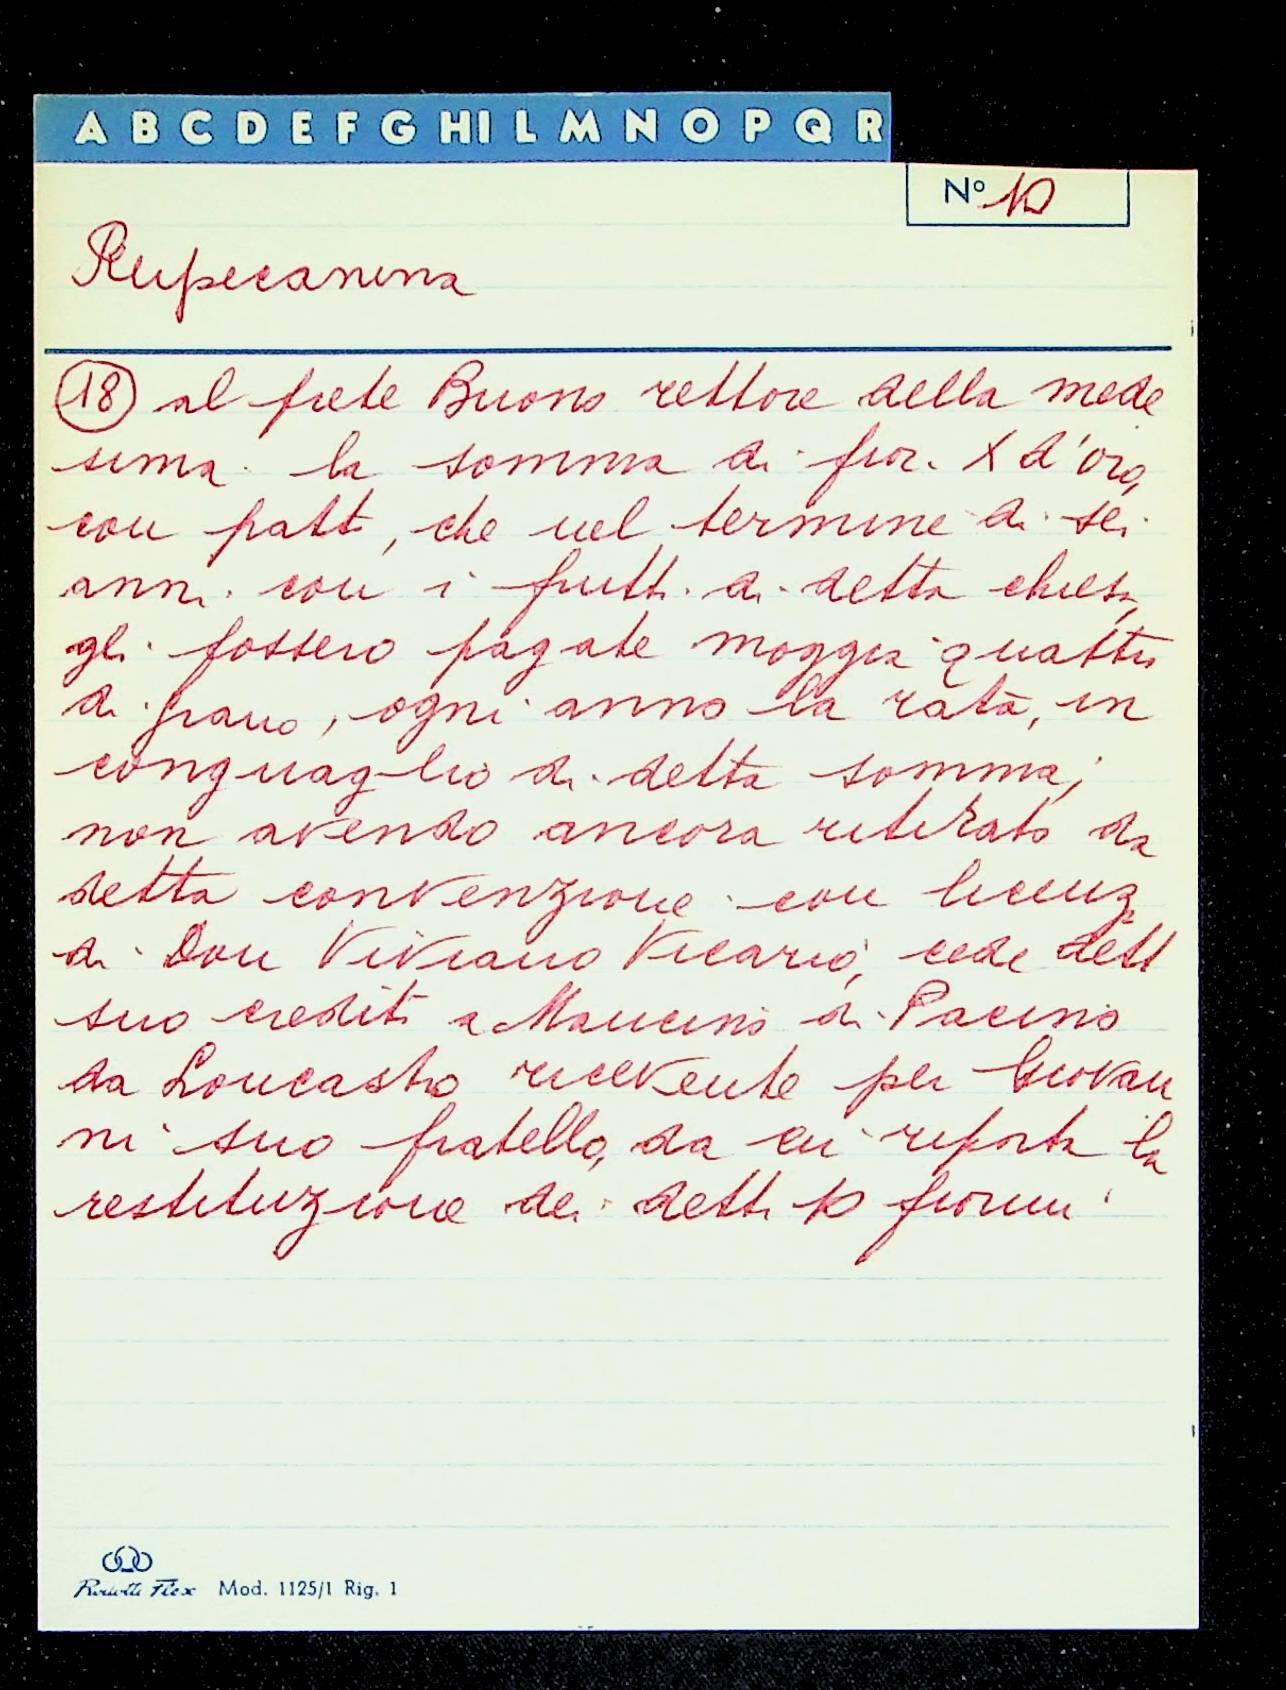 A B C D E F G HI L M N O P Q R
Nº 10
Rupecanina
18 al prete Buono rettore della mede
sima la somma di fior. X d'oro,
con patti, che nel termine di sei
anni con i frutti di detta chiesa,
gli fossero pagate moggia quattro
di grano, ogni anno la rata, in
conguaglio di detta somma;
non avendo ancora ritirato da
detta convenzione con licenza
di Don Viviano Vicario, cede detti
suo crediti a Mancino di Pacino
da Loncastro ricevente per Giovan
ni suo fratello, da cui riporta la
restituzione dei detti 10 fiorini
Mod. 1125/1 Rig. 1